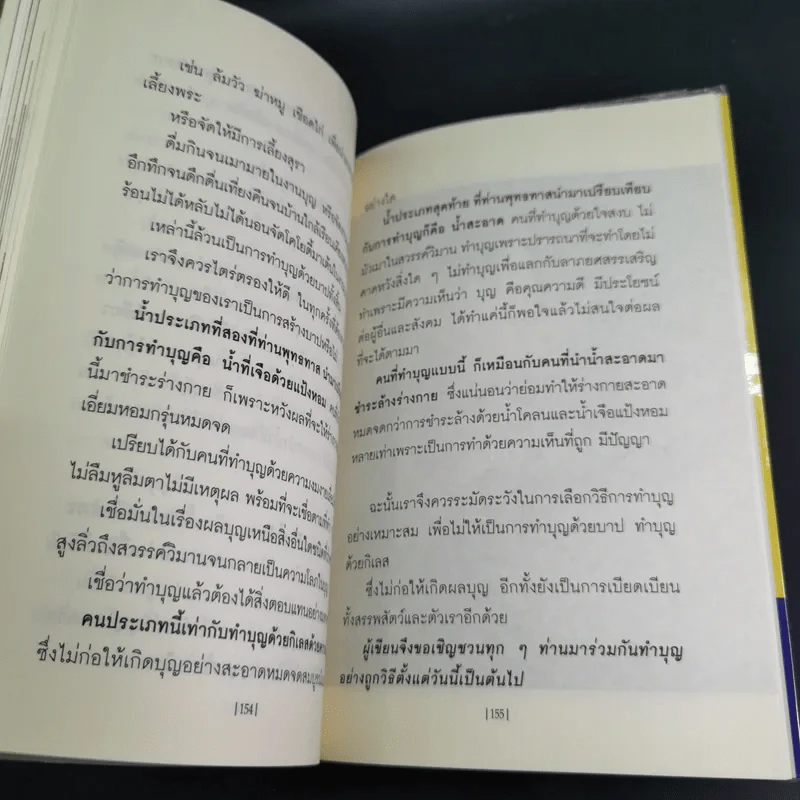 เช่น ล้มวัว ฆ่าหมู เชือดไก่
เลี้ยงพระ
หรือจัดให้มีการเลี้ยงสุรา
ดื่มกินจนเมามายในงานบุญ หรือจัด
อึกทึกจนดึกดื่นเที่ยงคืนจนบ้านใกล้เรือนเคียง
ร้อนไม่ได้หลับไม่ได้นอนจัดโคโยตี้มาเต้นใน
เหล่านี้ล้วนเป็นการทำบุญด้วยบาปทั้ง
เราจึงควรไตร่ตรองให้ดี ในทุกครั้งที่
ว่าการทำบุญของเราเป็นการสร้างบาปหรือไม่
น้ำประเภทที่สองที่ท่านพุทธทาส นำมา
กับการทำบุญคือ น้ำที่เจือด้วยแป้งหอม
นี้มาชำระร่างกาย ก็เพราะหวังผลที่จะให้
เอี่ยมหอมกรุ่นหมดจด
เปรียบได้กับคนที่ทำบุญด้วยความงมงาย
ไม่ลืมหูลืมตาไม่มีเหตุผล พร้อมที่จะเชื่อตาม
เชื่อมั่นในเรื่องผลบุญเหนือสิ่งอื่นใดชนิดที่
สูงลิ่วถึงสวรรค์วิมานจนกลายเป็นความโลภใน
เชื่อว่าทำบุญแล้วต้องได้สิ่งตอบแทนอย่าง
คนประเภทนี้เท่ากับทำบุญด้วยกิเลสด้วย
ซึ่งไม่ก่อให้เกิดบุญอย่างสะอาดหมดจด
|154|
อย่างใด
น้ำประเภทสุดท้าย ที่ท่านพุทธทาสนำมาเปรียบเทียบ
กับการทำบุญก็คือ น้ำสะอาด คนที่ทำบุญด้วยใจสงบ ไม่
มัวเมาในสวรรค์วิมาน ทำบุญเพราะปรารถนาที่จะทำโดยไม่
คาดหวังสิ่งใด ๆ ไม่ทำบุญเพื่อแลกกับลาภยศสรรเสริญ
ทำเพราะมีความเห็นว่า บุญ คือคุณความดี มีประโยชน์
ต่อผู้อื่นและสังคม ได้ทำแค่นี้ก็พอใจแล้วไม่สนใจต่อผล
ที่จะได้ตามมา
คนที่ทำบุญแบบนี้ ก็เหมือนกับคนที่นำน้ำสะอาดมา
ชำระล้างร่างกาย ซึ่งแน่นอนว่าย่อมทำให้ร่างกายสะอาด
หมดจดกว่าการชำระล้างด้วยน้ำโคลนและน้ำเจือแป้งหอม
หลายเท่าเพราะเป็นการทำด้วยความเห็นที่ถูก มีปัญญา
ฉะนั้นเราจึงควรระมัดระวังในการเลือกวิธีการทำบุญ
อย่างเหมาะสม เพื่อไม่ให้เป็นการทำบุญด้วยบาป ทำบุญ
ด้วยกิเลส
ซึ่งไม่ก่อให้เกิดผลบุญ อีกทั้งยังเป็นการเบียดเบียน
ทั้งสรรพสัตว์และตัวเราอีกด้วย
ผู้เขียนจึงขอเชิญชวนทุก ๆ ท่านมาร่วมกันทำบุญ
อย่างถูกวิธีตั้งแต่วันนี้เป็นต้นไป
|155|